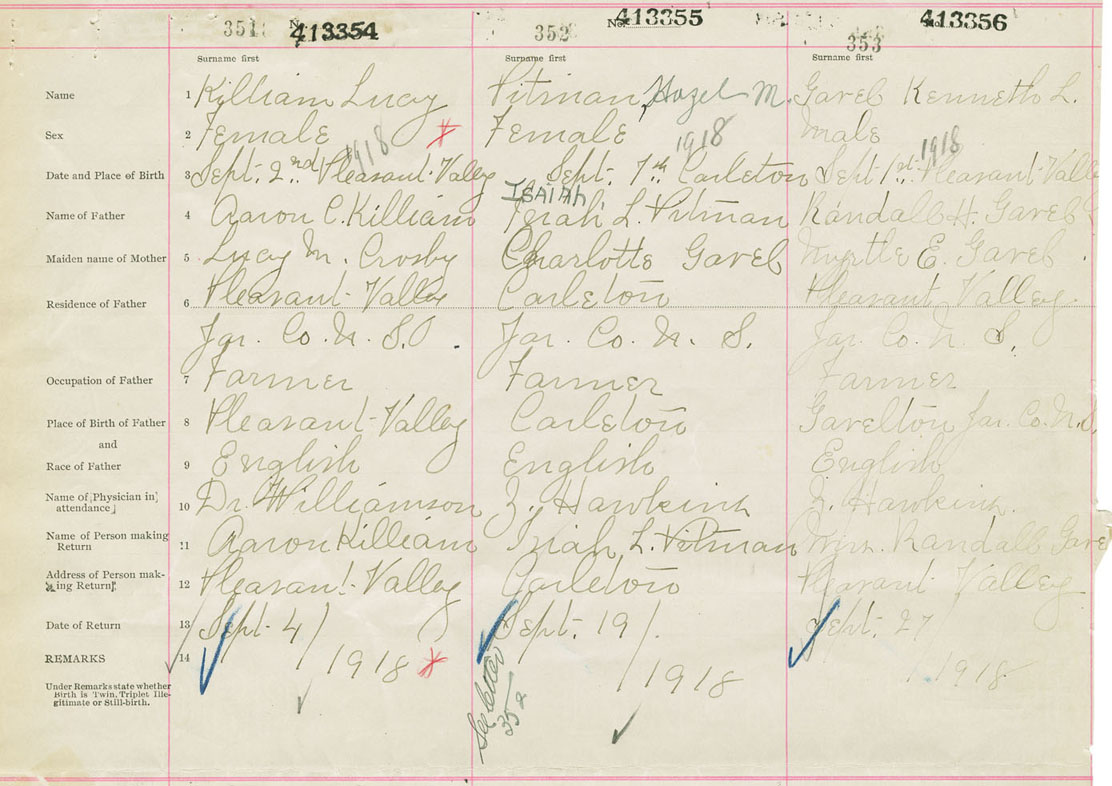 351 No. 413354
352 No. 413355
353 No. 413356
Surname first Surname first Surname first
Name 1 Killiam Lucy Pitman, Hazel M. Gavel Kenneth L.
Sex 2 Female Female Male
1918 1918 1918
Date and Place of Birth 3 Sept. 2nd Pleasant Valley Sept. 7th Carleton Sept 1st Pleasant Valley
ISAIAH
Name of Father 4 Aaron C. Killiam L. Pitman Randall H. Gavel
Maiden name of Mother 5 Lucy M. Crosby Charlotte Gavel Myrtle E. Gavel
Residence of Father 6 Pleasant Valley Carleton Pleasant Valley
Yar. Co. N. S. Yar. Co. N. S. Yar. Co. N. S.
Occupation of Father 7 Farmer Farmer Farmer
Place of Birth of Father 8 Pleasant Valley Carleton Gavelton Yar. Co. N.S.
and
Race of Father 9 English English English
Name of [Physician in
attendance] 10 Dr. Williamson Z. Hawkins Z. Hawkins.
Name of Person making
Return 11 Aaron Killiam L. Pitman Mrs. Randall Gavel
Address of Person mak-
ing Return 12 Pleasant Valley Carleton Pleasant Valley
Date of Return 13 Sept 4/ Sept. 19/. Sept. 27
REMARKS 14 /1918 /1918 1918
Under Remarks state whether
Birth is Twin, Triplet Ille-
gitimate or Still-birth.
See letter
352